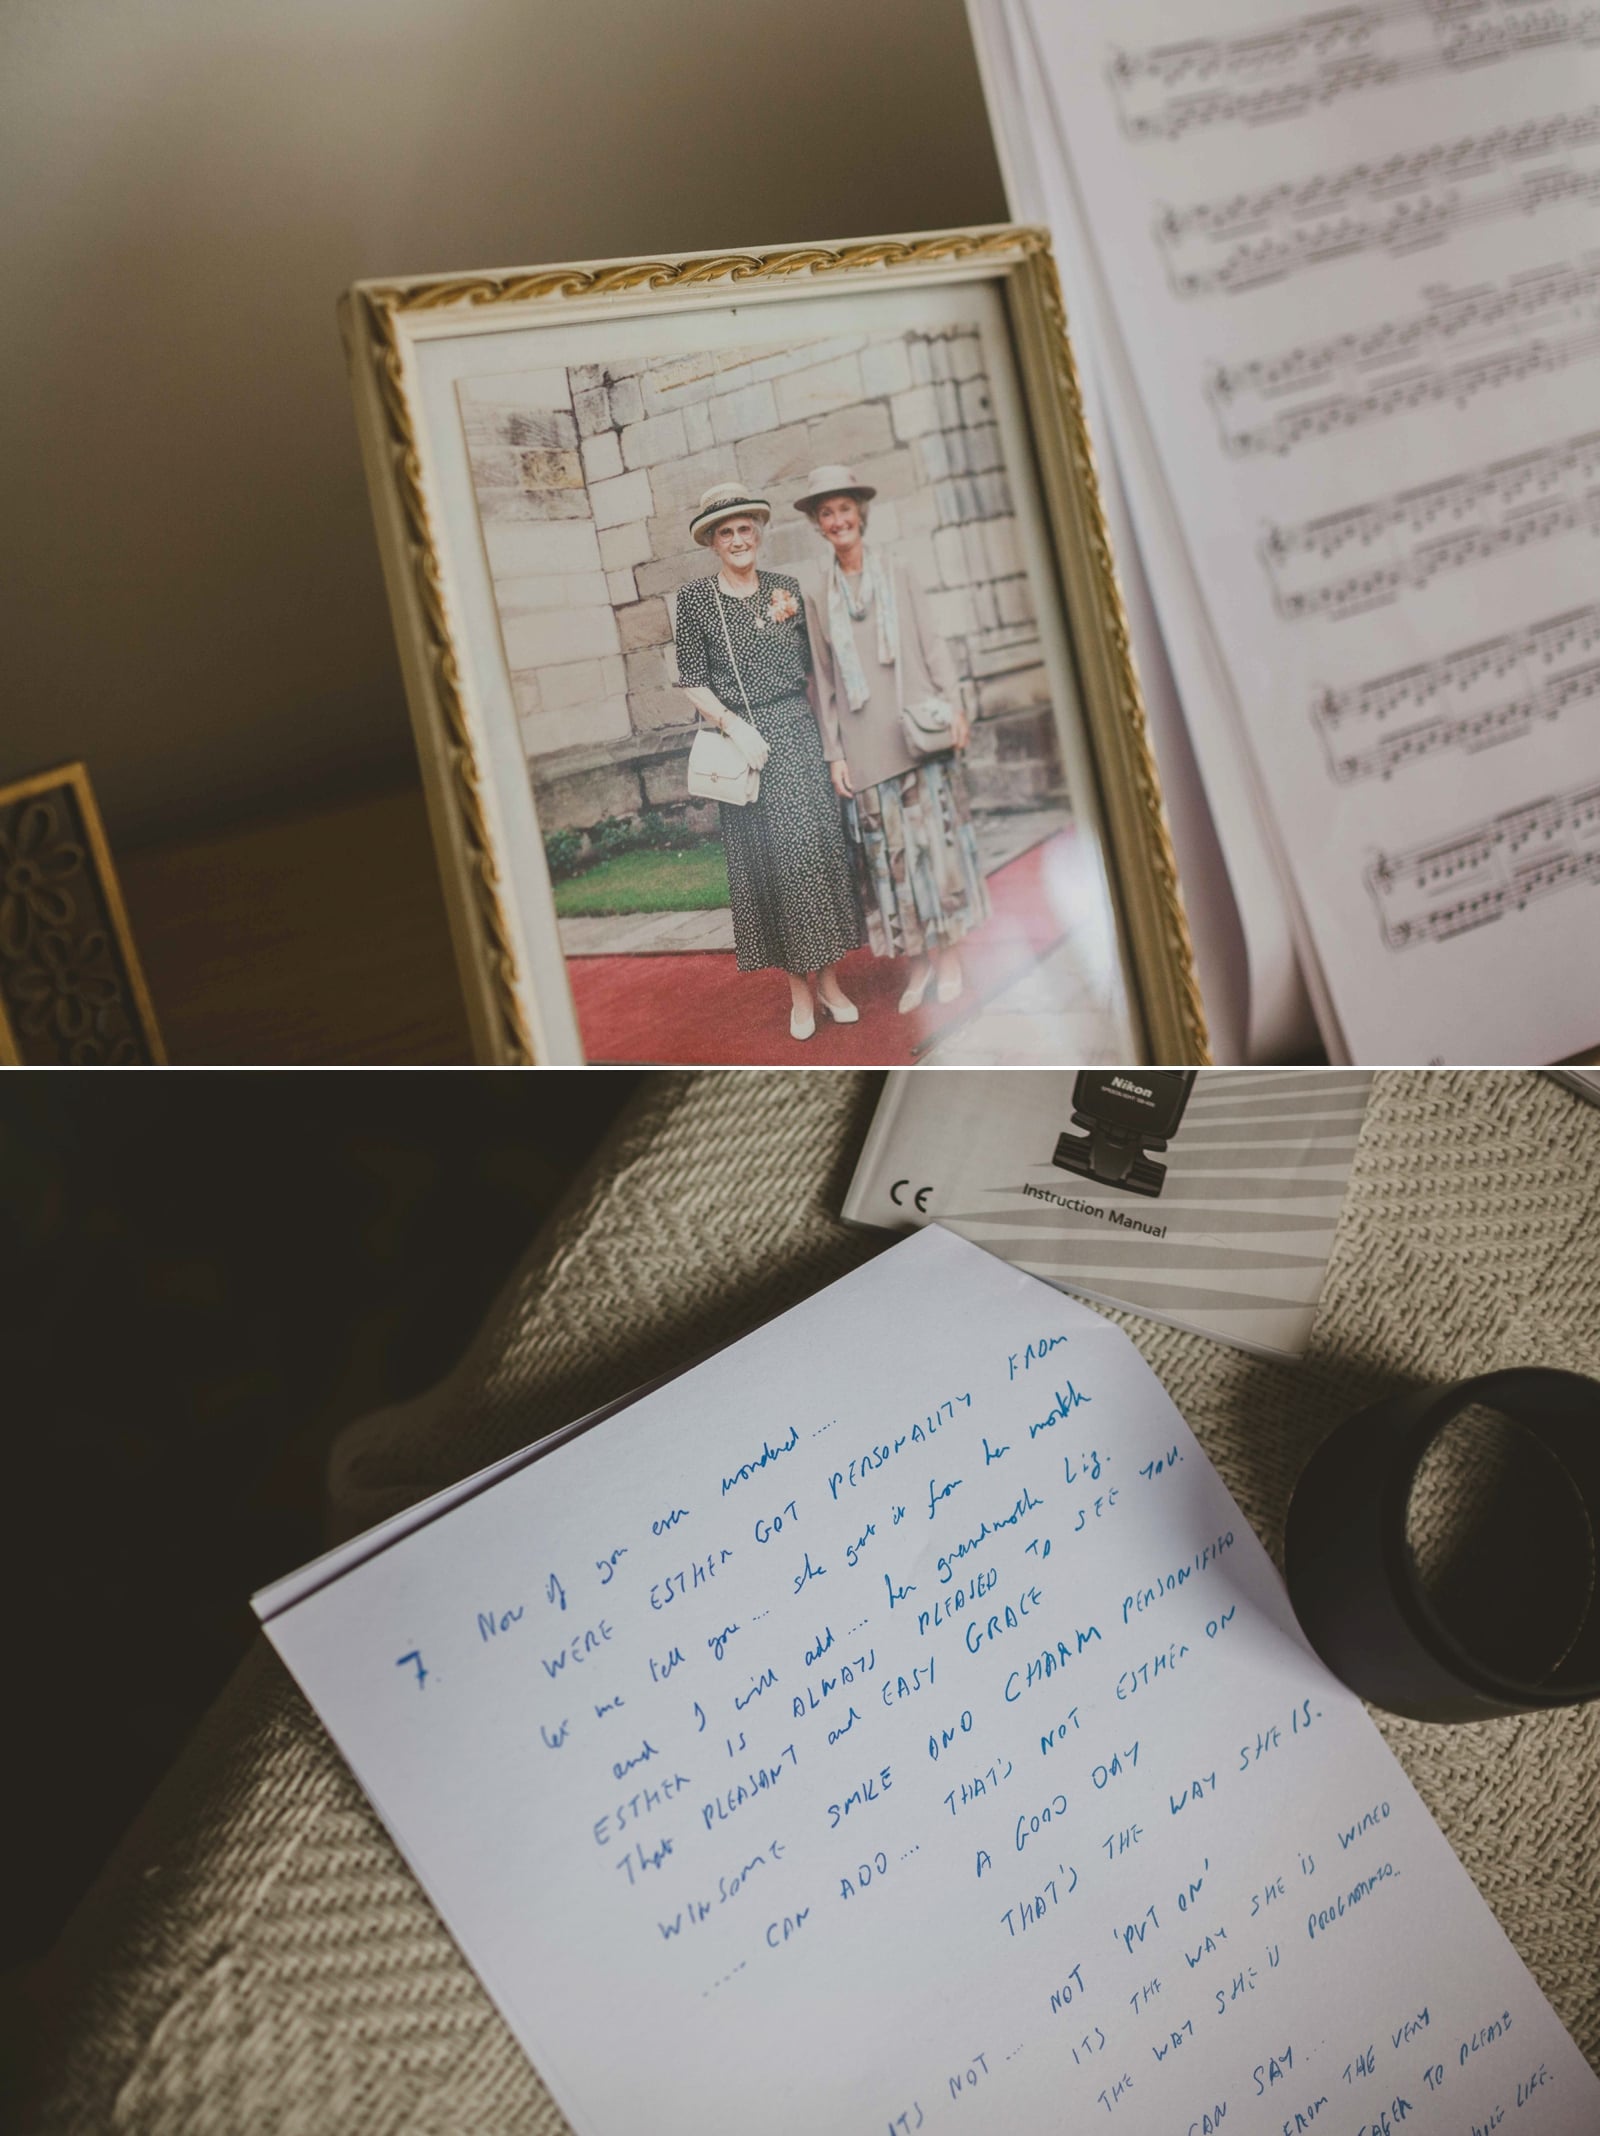 Nikon
SPEEDLIGHT SB-600
CE
Instruction Manual
7. Now if you ever wondered ....
WERE ESTHER GOT PERSONALITY FROM
let me tell you .... she got it from her mother
and I will add .... her grandmother Liz.
ESTHER IS ALWAYS PLEASED TO SEE YOU.
That PLEASANT and EASY GRACE
WINSOME SMILE AND CHARM PERSONIFIED
..... CAN ADD .... THAT'S NOT ESTHER ON
A GOOD DAY
THAT'S THE WAY SHE IS.
ITS NOT .... NOT 'PUT ON'
ITS THE WAY SHE IS WIRED
THE WAY SHE IS PROGRAMMED..
CAN SAY...
FROM THE VERY
EAGER TO PLEASE
WHOLE LIFE.